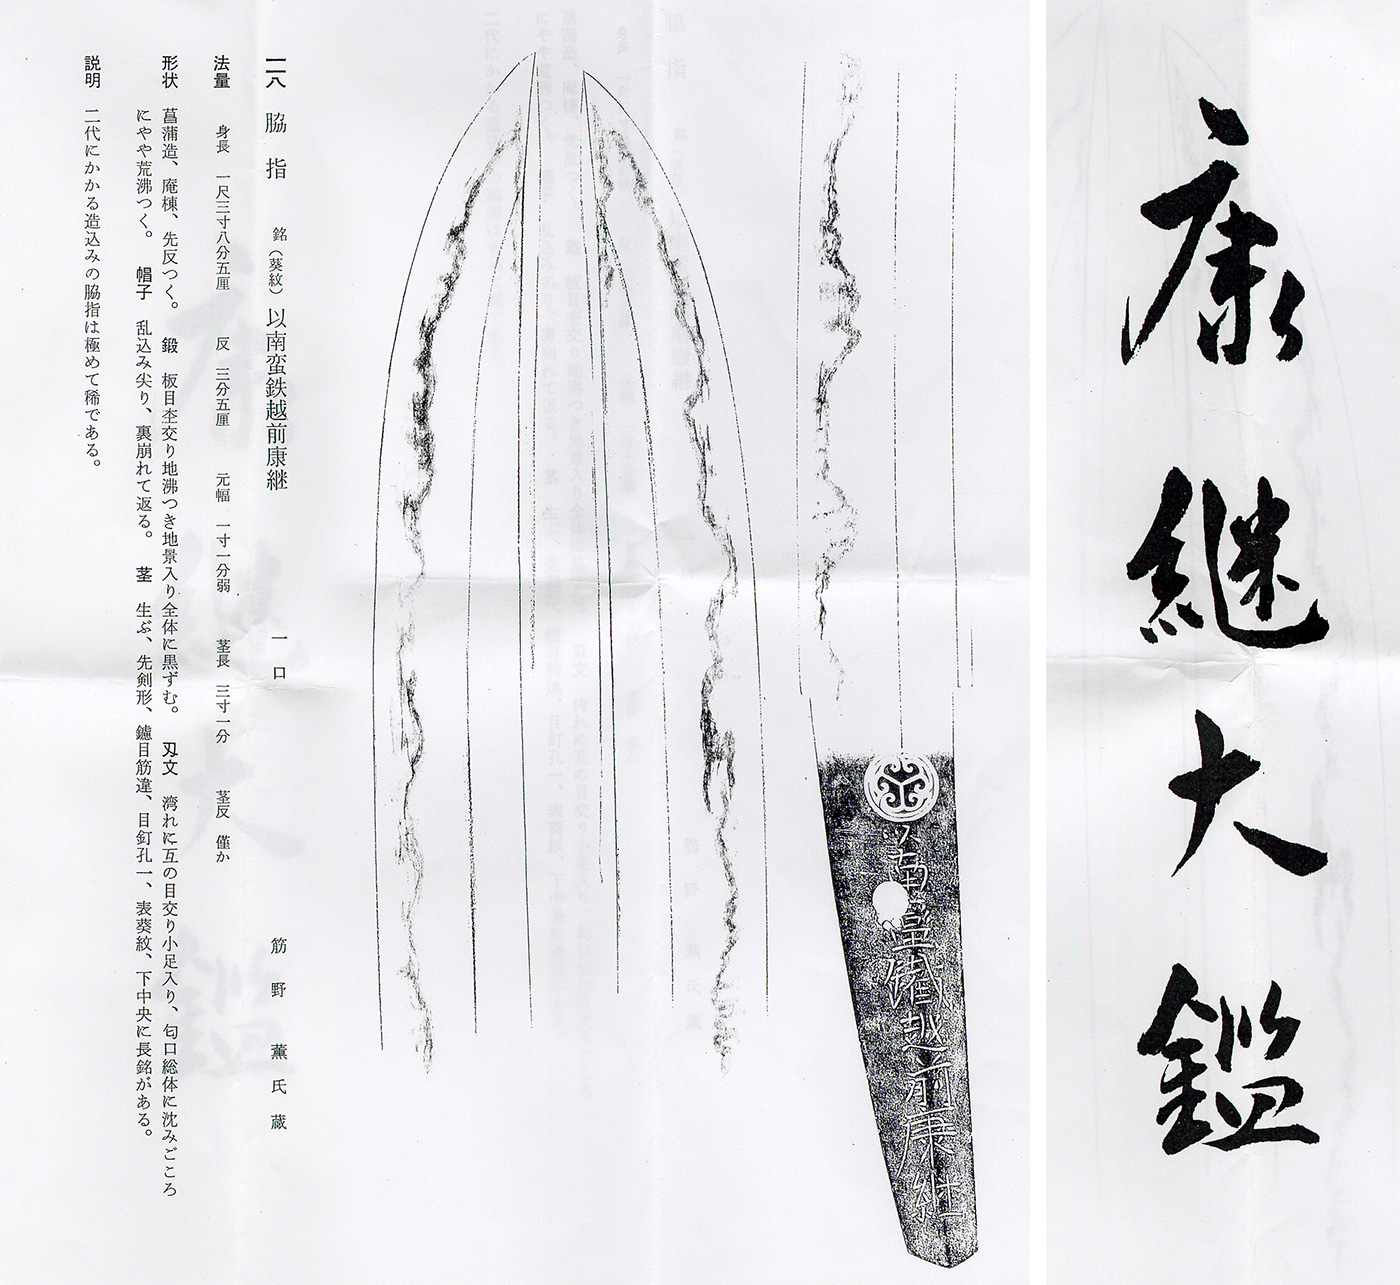 康継大鑑
以南蛮鉄越前康継
一二八 脇指 銘(葵紋)以南蛮鉄越前康継 一口 筋野薫氏蔵
法量 身長 一尺三寸八分五厘 反 三分五厘 元幅 一寸一分弱 茎長 三寸一分 茎反 僅か
形状 菖蒲造、庵棟、先反つく。 鍛 板目杢交り地沸つき地景入り全体に黒ずむ。 刃文 湾れに互の目交り小足入り、匂口総体に沈みごころ
にやや荒沸つく。 帽子 乱込み尖り、裏崩れて返る。 茎 生ぶ、先剣形、鑢目筋違、目釘孔一、表葵紋、下中央に長銘がある。
説明 二代にかかる造込みの脇指は極めて稀である。